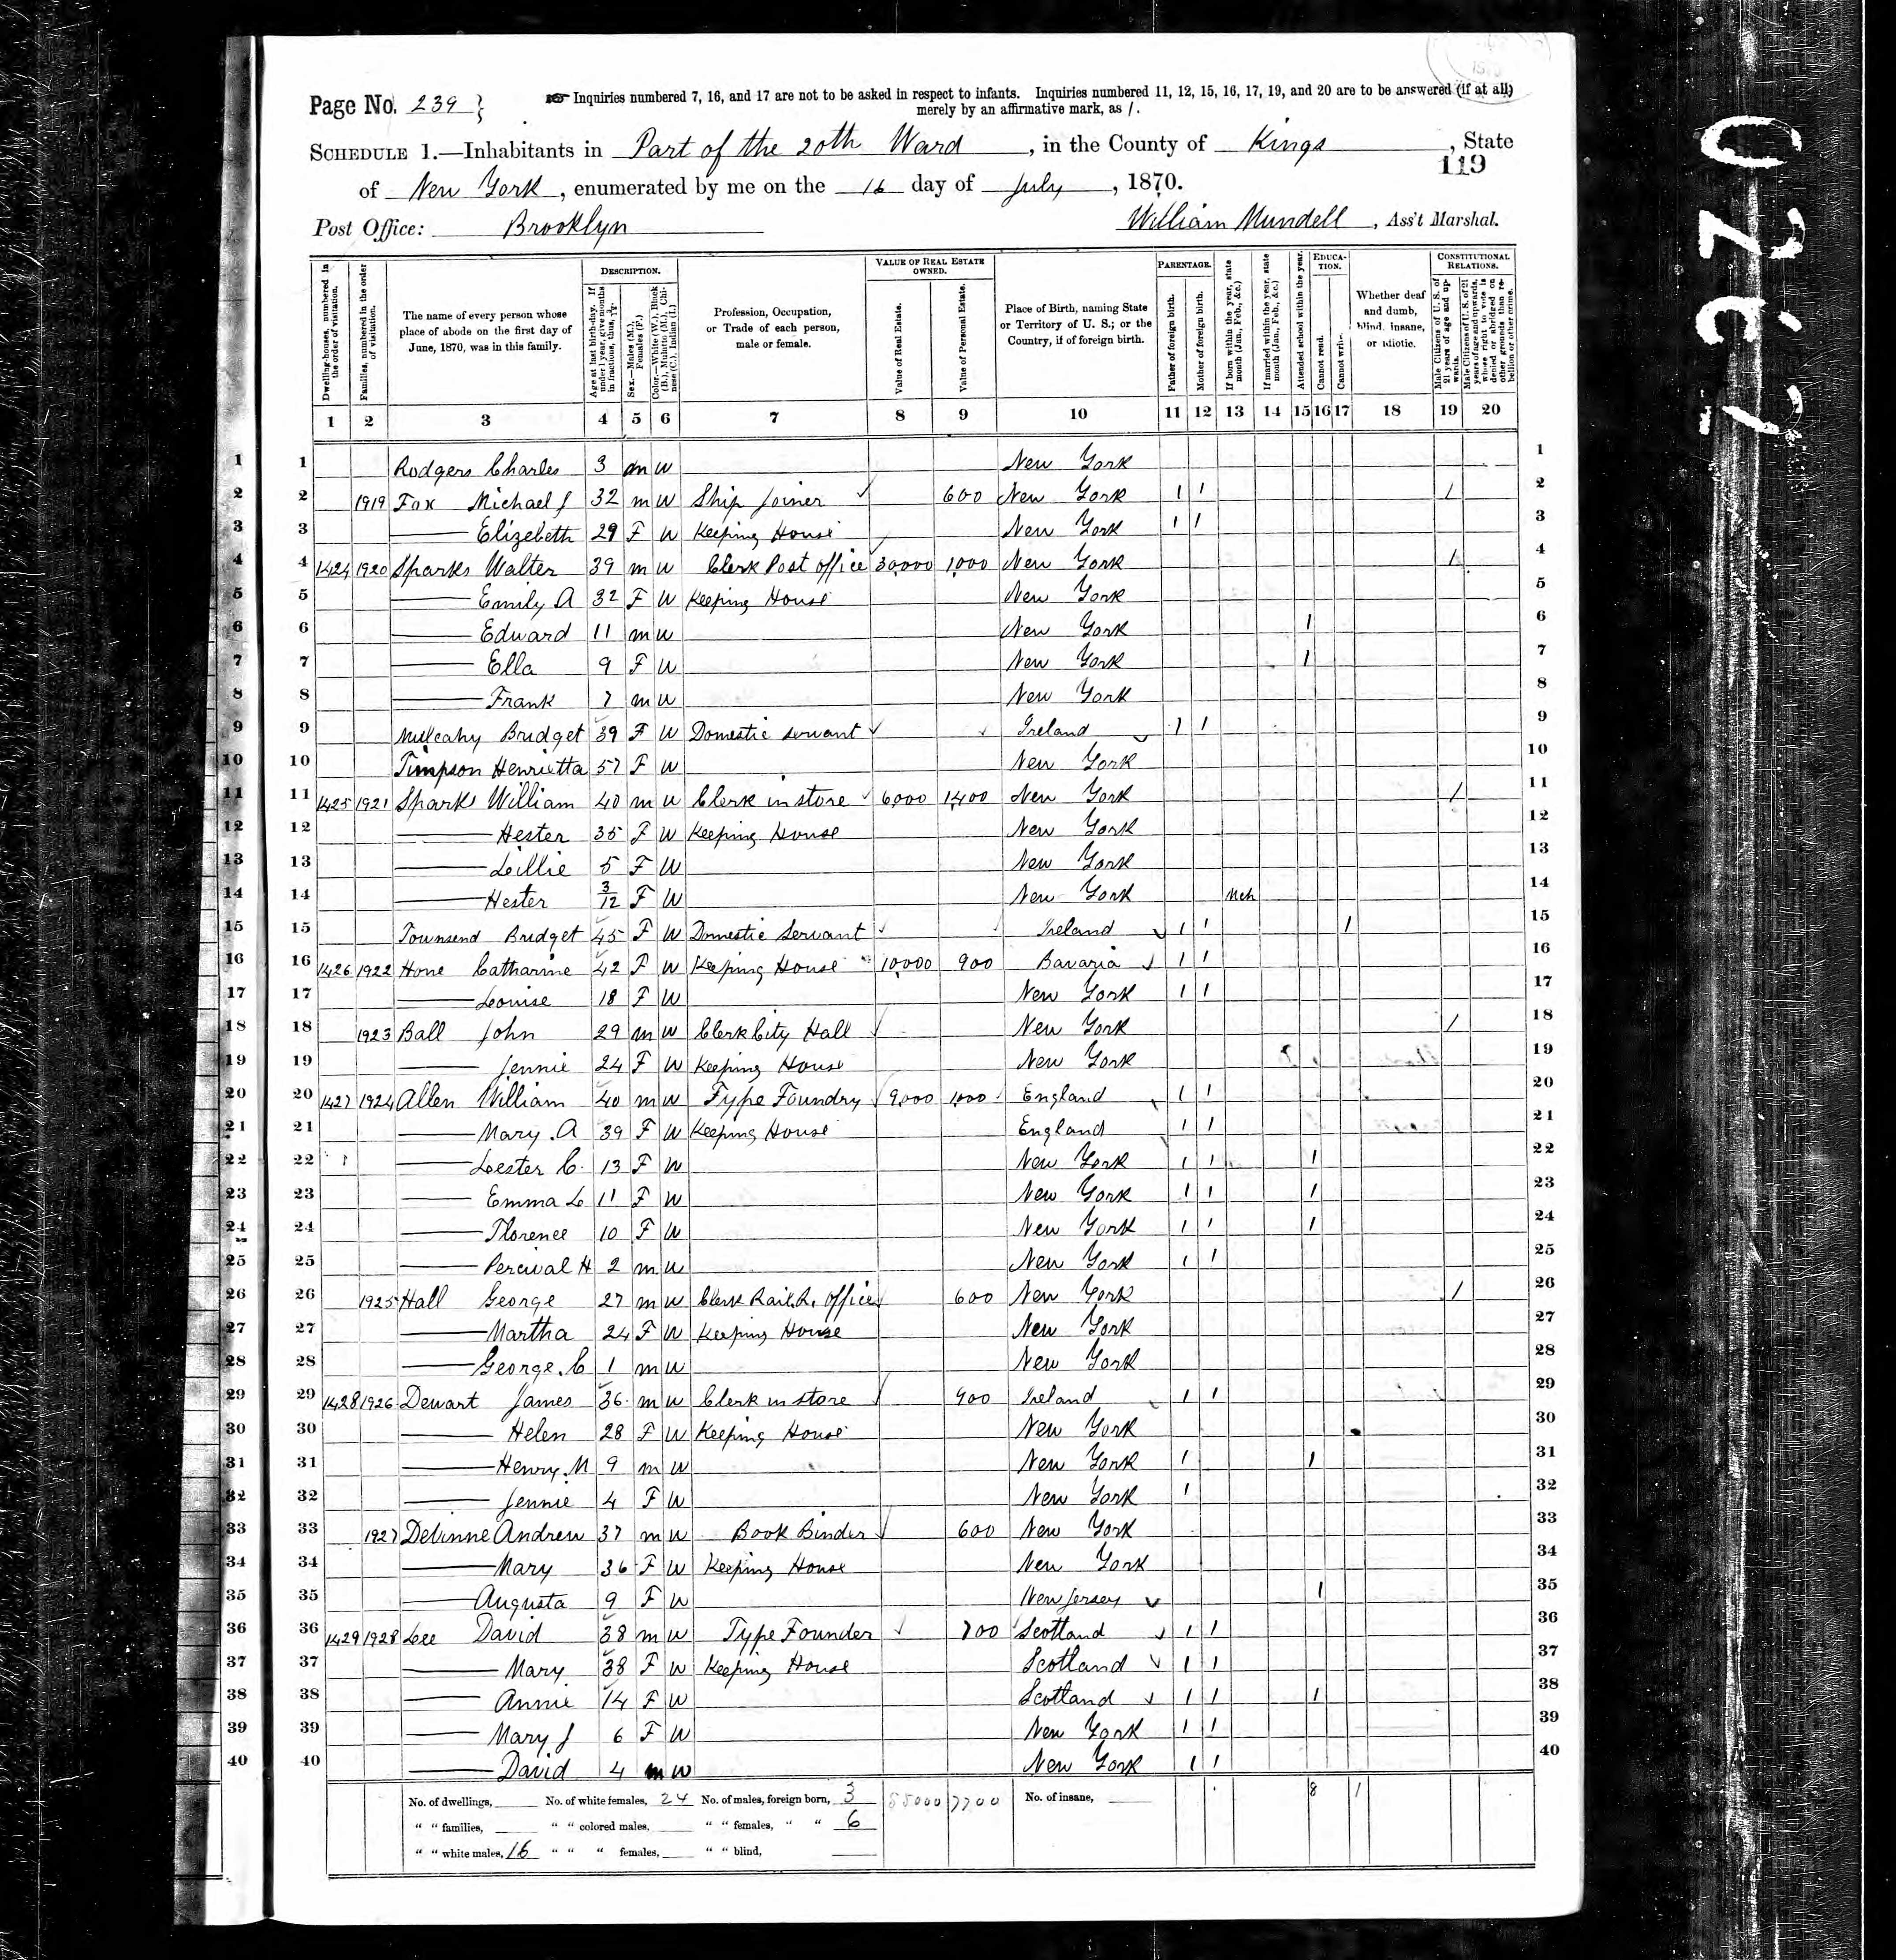 Page No. 239
Inquiries numbered 7, 16, and 17 are not to be asked in respect to infants. Inquiries numbered 11, 12, 15, 16, 17, 19, and 20 are to be answered (if at all)
merely by an affirmative mark, as /.
SCHEDULE 1.—Inhabitants in Part of the 20th Ward, in the County of Kings, State
119
of New York, enumerated by me on the 16 day of July, 1870.
Post Office: Brooklyn William Mundell, Ass't Marshal.
Dwelling-houses, numbered in the order of visitation.
Families, numbered in the order of visitation.
The name of every person whose place of abode on the first day of June, 1870, was in this family.
DESCRIPTION.
Age at last birth-day. If under 1 year, give months in fractions, thus, 3/12
Sex.—Males (M.), Females (F.)
Color.—White (W.), Black (B.), Mulatto (M.), Chinese (C.), Indian (I.)
Profession, Occupation, or Trade of each person, male or female.
VALUE OF REAL ESTATE OWNED.
Value of Real Estate.
Value of Personal Estate.
Place of Birth, naming State or Territory of U. S.; or the Country, if of foreign birth.
PARENTAGE.
Father of foreign birth.
Mother of foreign birth.
If born within the year, state month (Jan., Feb., &c.)
If married within the year, state month (Jan., Feb., &c.)
Attended school within the year.
EDUCATION.
Cannot read.
Cannot write.
Whether deaf and dumb, blind, insane, or idiotic.
CONSTITUTIONAL RELATIONS.
Male Citizens of U. S. of 21 years of age and upwards.
Male Citizens of U. S. of 21 years of age and upwards, whose right to vote is denied or abridged on other grounds than rebellion or other crime.
1 2 3 4 5 6 7 8 9 10 11 12 13 14 15 16 17 18 19 20
1 1 Rodgers Charles 3 m W New York 1
2 2 1919 Fox Michael J 32 m W Ship Joiner 600 New York 1 1 1 2
3 3 —— Elizebeth 29 F W Keeping House New York 1 1 3
4 4 1424 1920 Sparks Walter 39 m W Clerk Post office 30,000 1,000 New York 1 4
5 5 —— Emily A 32 F W Keeping House New York 5
6 6 —— Edward 11 m W New York 1 6
7 7 —— Ella 9 F W New York 1 7
8 8 —— Frank 7 m W New York 8
9 9 Mulcahy Bridget 39 F W Domestic servant Ireland 1 1 9
10 10 Timpson Henrietta 57 F W New York 10
11 11 1425 1921 Sparks William 40 m W Clerk in store 6,000 1,400 New York 1 11
12 12 —— Hester 35 F W Keeping House New York 12
13 13 —— Lillie 5 F W New York 13
14 14 —— Hester 3/12 F W New York Mch 14
15 15 Townsend Bridget 45 F W Domestic Servant Ireland 1 1 1 15
16 16 1426 1922 Hone Catharine 42 F W Keeping House 10,000 900 Bavaria 1 1 16
17 17 —— Louise 18 F W New York 1 1 17
18 18 1923 Ball John 29 m W Clerk City Hall New York 1 18
19 19 —— Jennie 24 F W Keeping House New York 19
20 20 1427 1924 Allen William 40 m W Type Foundry 9,000 1,000 England 1 1 20
21 21 —— Mary. A 39 F W Keeping House England 1 1 21
22 22 —— Lester C. 13 F W New York 1 1 1 22
23 23 —— Emma L 11 F W New York 1 1 1 23
24 24 —— Florence 10 F W New York 1 1 1 24
25 25 —— Percival H 2 m W New York 1 1 25
26 26 1925 Hall George 27 m W Clerk Rail. R. office 600 New York 1 26
27 27 —— Martha 24 F W Keeping House New York 27
28 28 —— George. C 1 m W New York 28
29 29 1428 1926 Dewart James 36 m W Clerk in store 900 Ireland 1 1 29
30 30 —— Helen 28 F W Keeping House New York 30
31 31 —— Henry. M 9 m W New York 1 1 31
32 32 —— Jennie 4 F W New York 1 32
33 33 1927 Devinne Andrew 37 m W Book Binder 600 New York 33
34 34 —— Mary 36 F W Keeping House New York 34
35 35 —— Augusta 9 F W New Jersey 1 35
36 36 1429 1928 Lee David 38 m W Type Founder 700 Scotland 1 1 36
37 37 —— Mary 38 F W Keeping House Scotland 1 1 37
38 38 —— Annie 14 F W Scotland 1 1 1 38
39 39 —— Mary J 6 F W New York 1 1 39
40 40 —— David 4 m W New York 1 1 40
No. of dwellings, No. of white females, 24 No. of males, foreign born, 3 55000 7700 No. of insane, 8 1
" " families, " " colored males, " " females, " " 6
" " white males, 16 " " " females, " " blind,